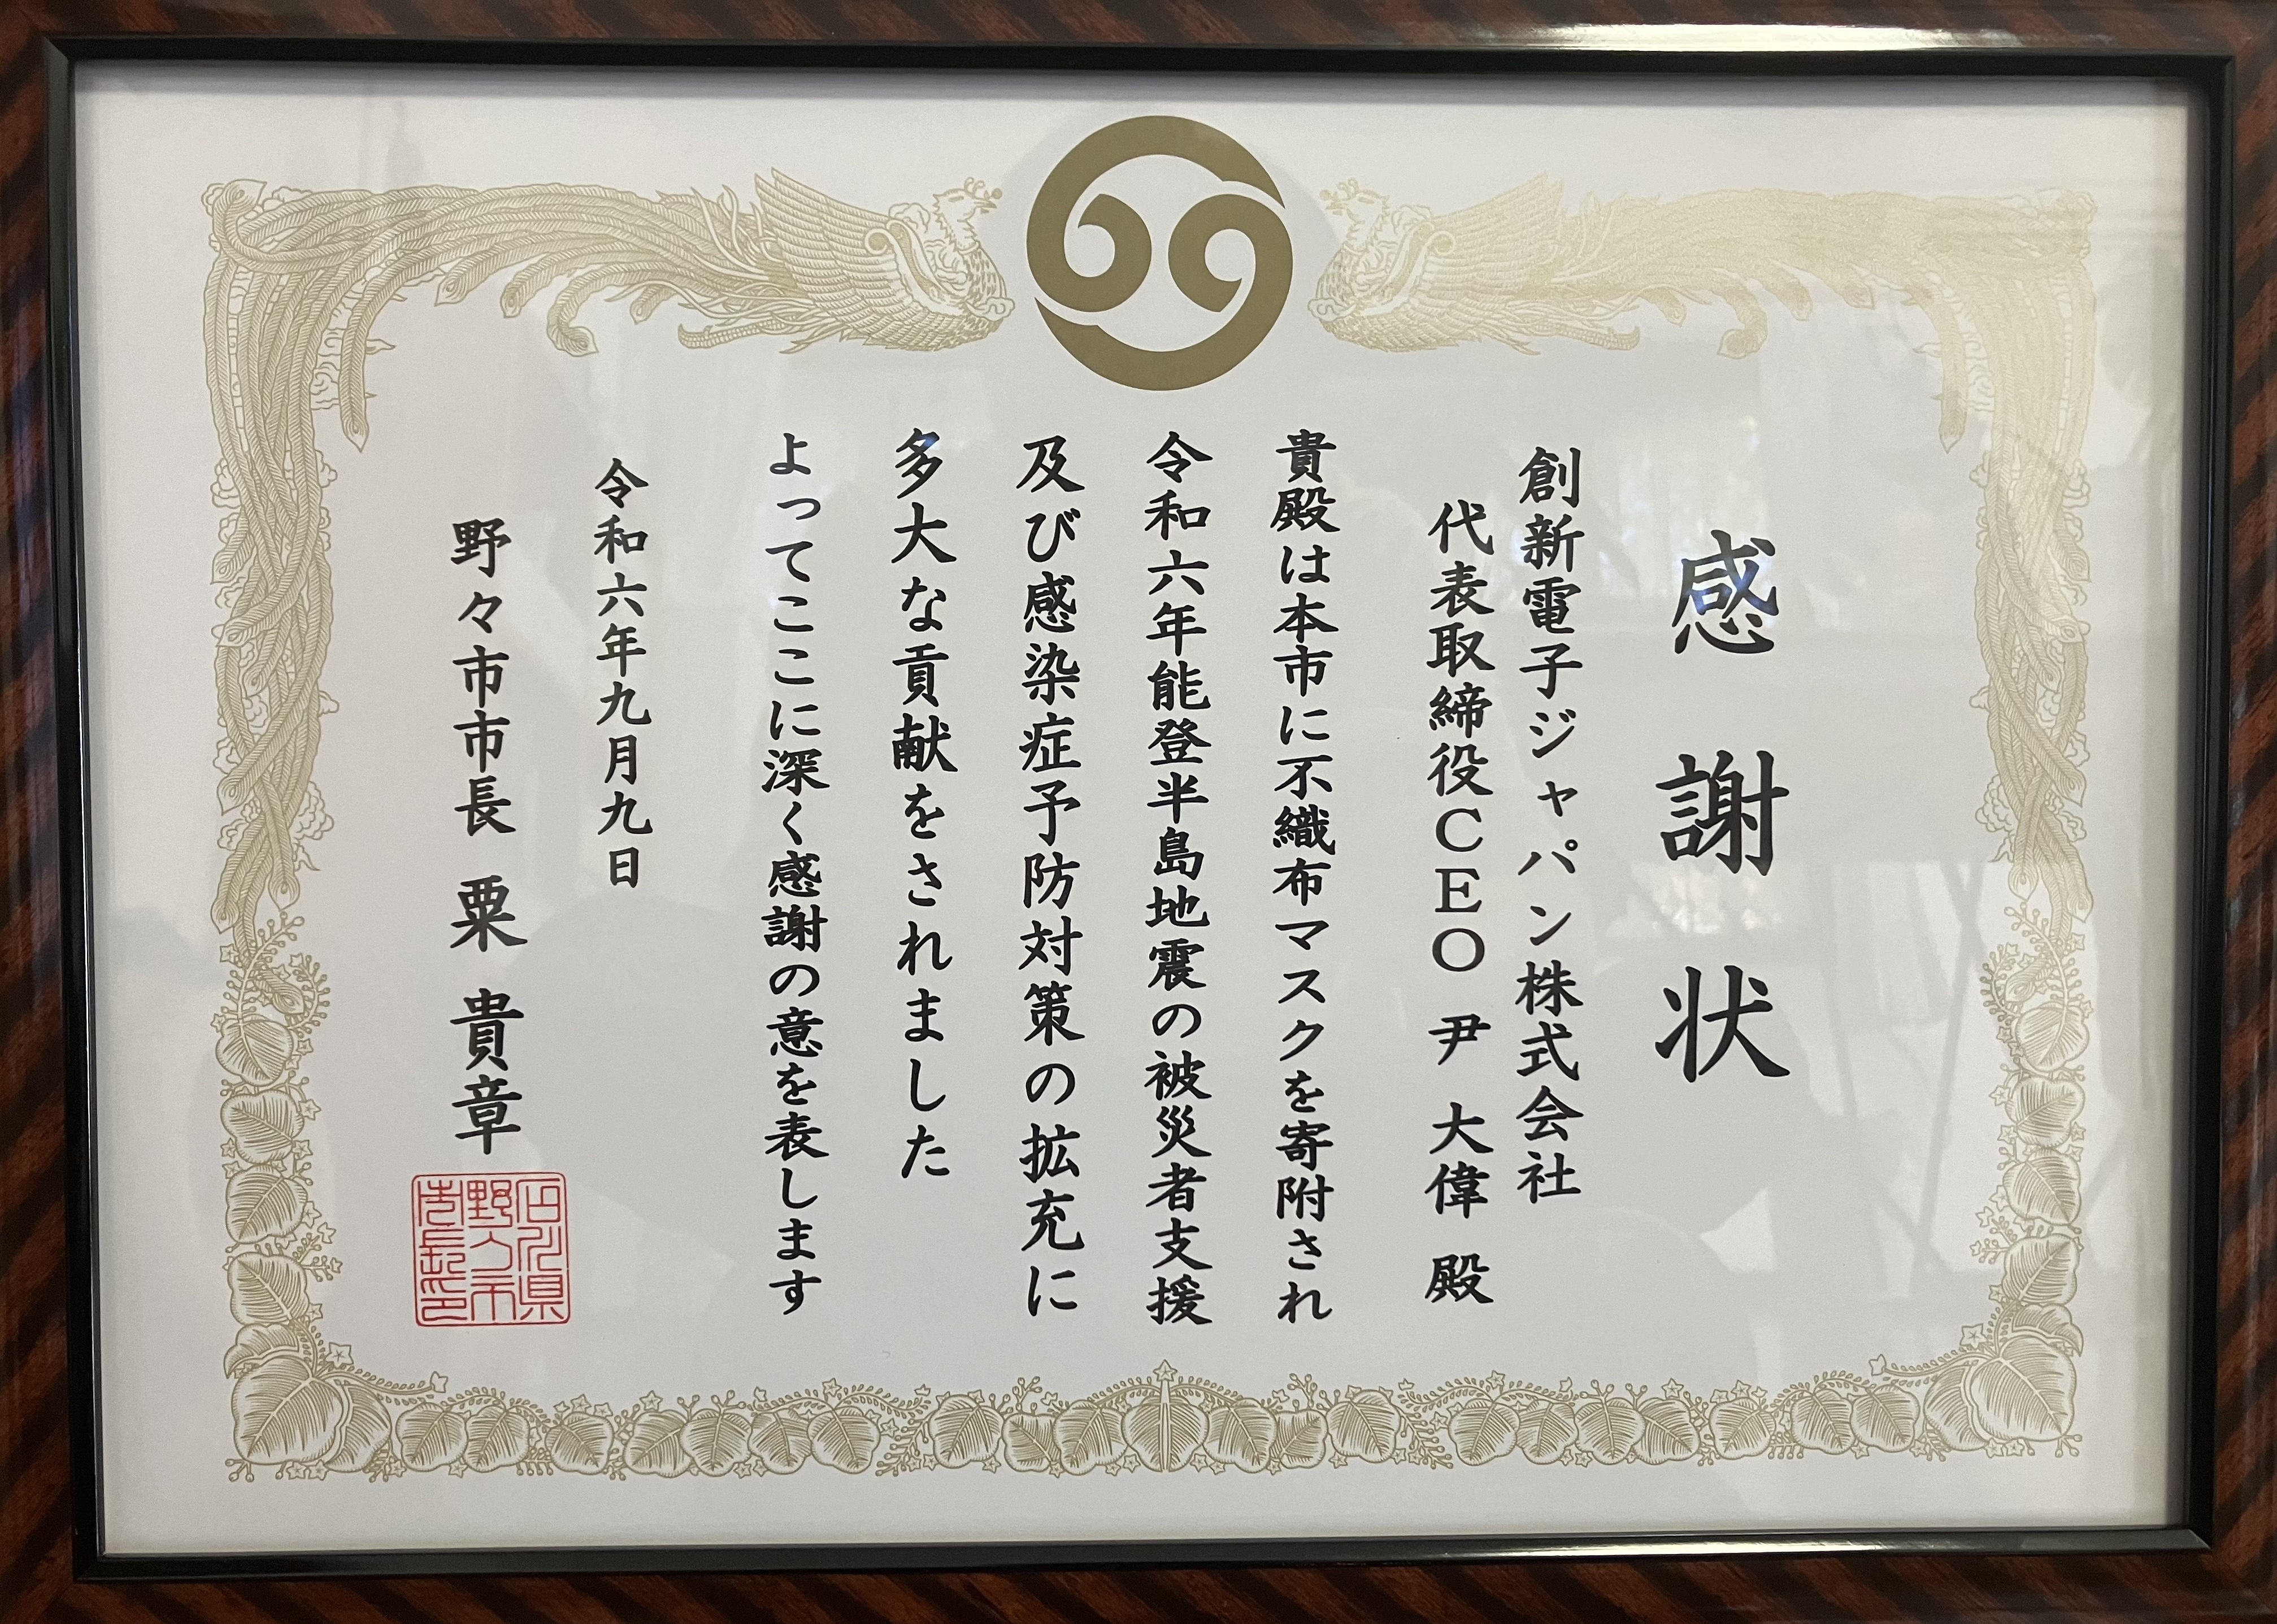 感謝状
創新電子ジャパン株式会社
代表取締役CEO 尹 大偉 殿
貴殿は本市に不織布マスクを寄附され
令和六年能登半島地震の被災者支援
及び感染症予防対策の拡充に
多大な貢献をされました
よってここに深く感謝の意を表します
令和六年九月九日
野々市市長 粟 貴章
石川県
野々市
市長印